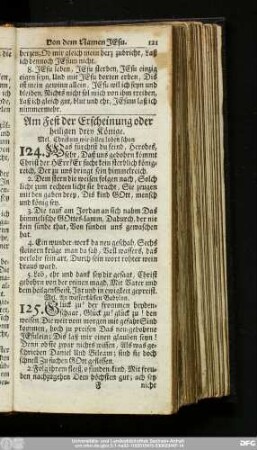 Von dem Namen JEsu. 121
hertzen, Ob mir gleich mein hertz zubricht, Laß
ich dennoch JEsum nicht.
8. JEsu leben, JEsu sterben, JEsu eintzig
eigen seyn, Und mit JEsu dorten erben, Dis
ist mein gewinn allein. JEsu will ich seyn und
bleiben, Nichts nicht sol mich von ihm treiben,
laß ich gleich gut, blut und ehr, JEsum laß ich
nimmermehr.
Am Fest der Erscheinung oder
heiligen drey Könige.
Mel. Christum wir sollen loben schon
124. Was fürchtst du feind, Herodes,
sehr, Daß uns gebohrn kommt
Christ der HErr? Er sucht kein sterblich König-
reich, Der zu uns bringt sein himmelreich.
2. Dem stern die weisen folgen nach, Solch
licht zum rechten licht sie bracht, Sie zeugen
mit den gaben drey, Dis kind GOtt, mensch
und könig sey.
3. Die tauf am Jordan an sich nahm Das
himmelische GOttes-lamm, Dadurch, der nie
kein sünde that, Von sünden uns gewaschen
hat.
4. Ein wunder-werk da neu geschah, Sechs
steinern krüge man da sah, Voll wassers, das
verlohr sein art, Durch sein wort rohter wein
draus ward.
5. Lob, ehr und dank sey dir gesagt, Christ
gebohrn von der reinen magd, Mit Vater und
dem heilgen Geist, Ist und in ewigkeit gepreist.
Mel. An wasserflüssen Babylon.
125. Glück zu! der frommen heyden-
schaar, Glück zu! glück zu! den
weisen, Die weit vom morgen mit gefahr Sind
kommen, hoch zu preisen Das neu-gebohrne
JEsulein;
Denn ob sie zwar nichts wissen, Als was ge-
schrieben Daniel Und Bileam; sind sie doch
schnell Zu suchen GOtt geflissen.
2. Folg ihrem fleiß, o sünden-kind, Mit freu-
den nachzugehen Dem höchsten gut; ach sey
F nicht